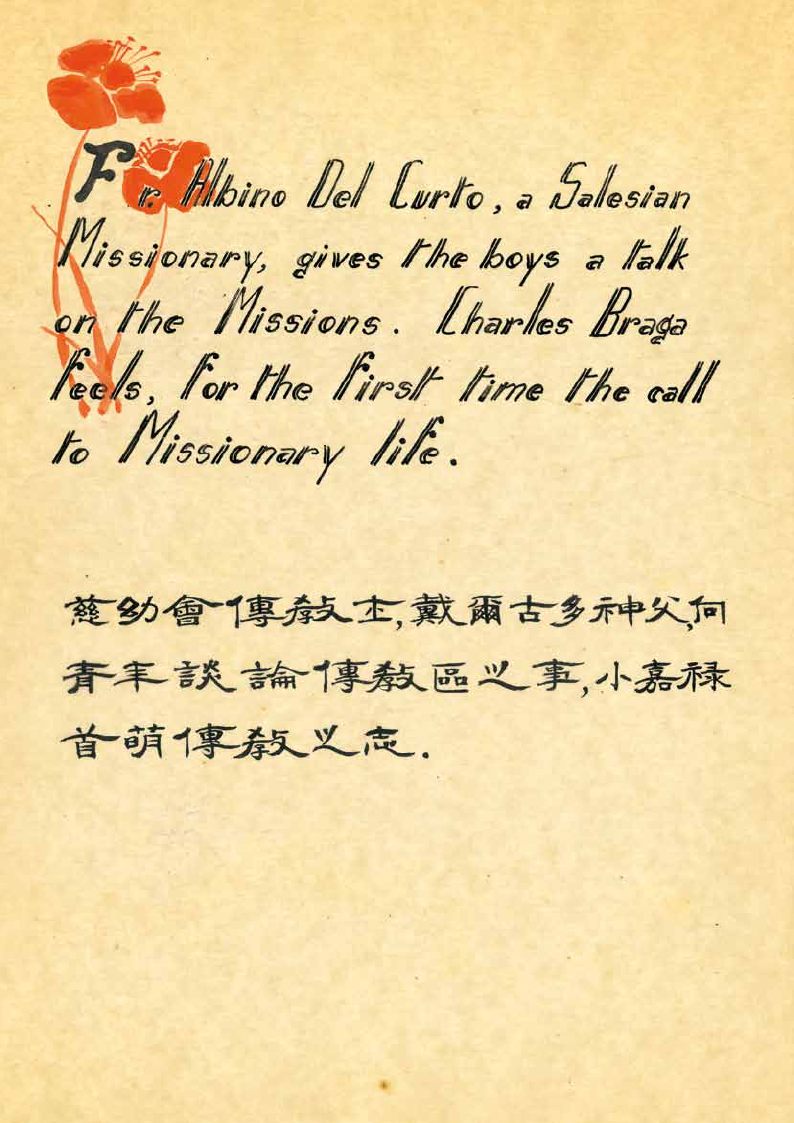 Fr. Albino Del Curto, a Salesian
Missionary, gives the boys a talk
on the Missions. Charles Braga
feels, for the first time the call
to Missionary life.
慈幼會傳教士,戴爾古多神父,向
青年談論傳教區之事,小嘉祿
首萌傳教之志.